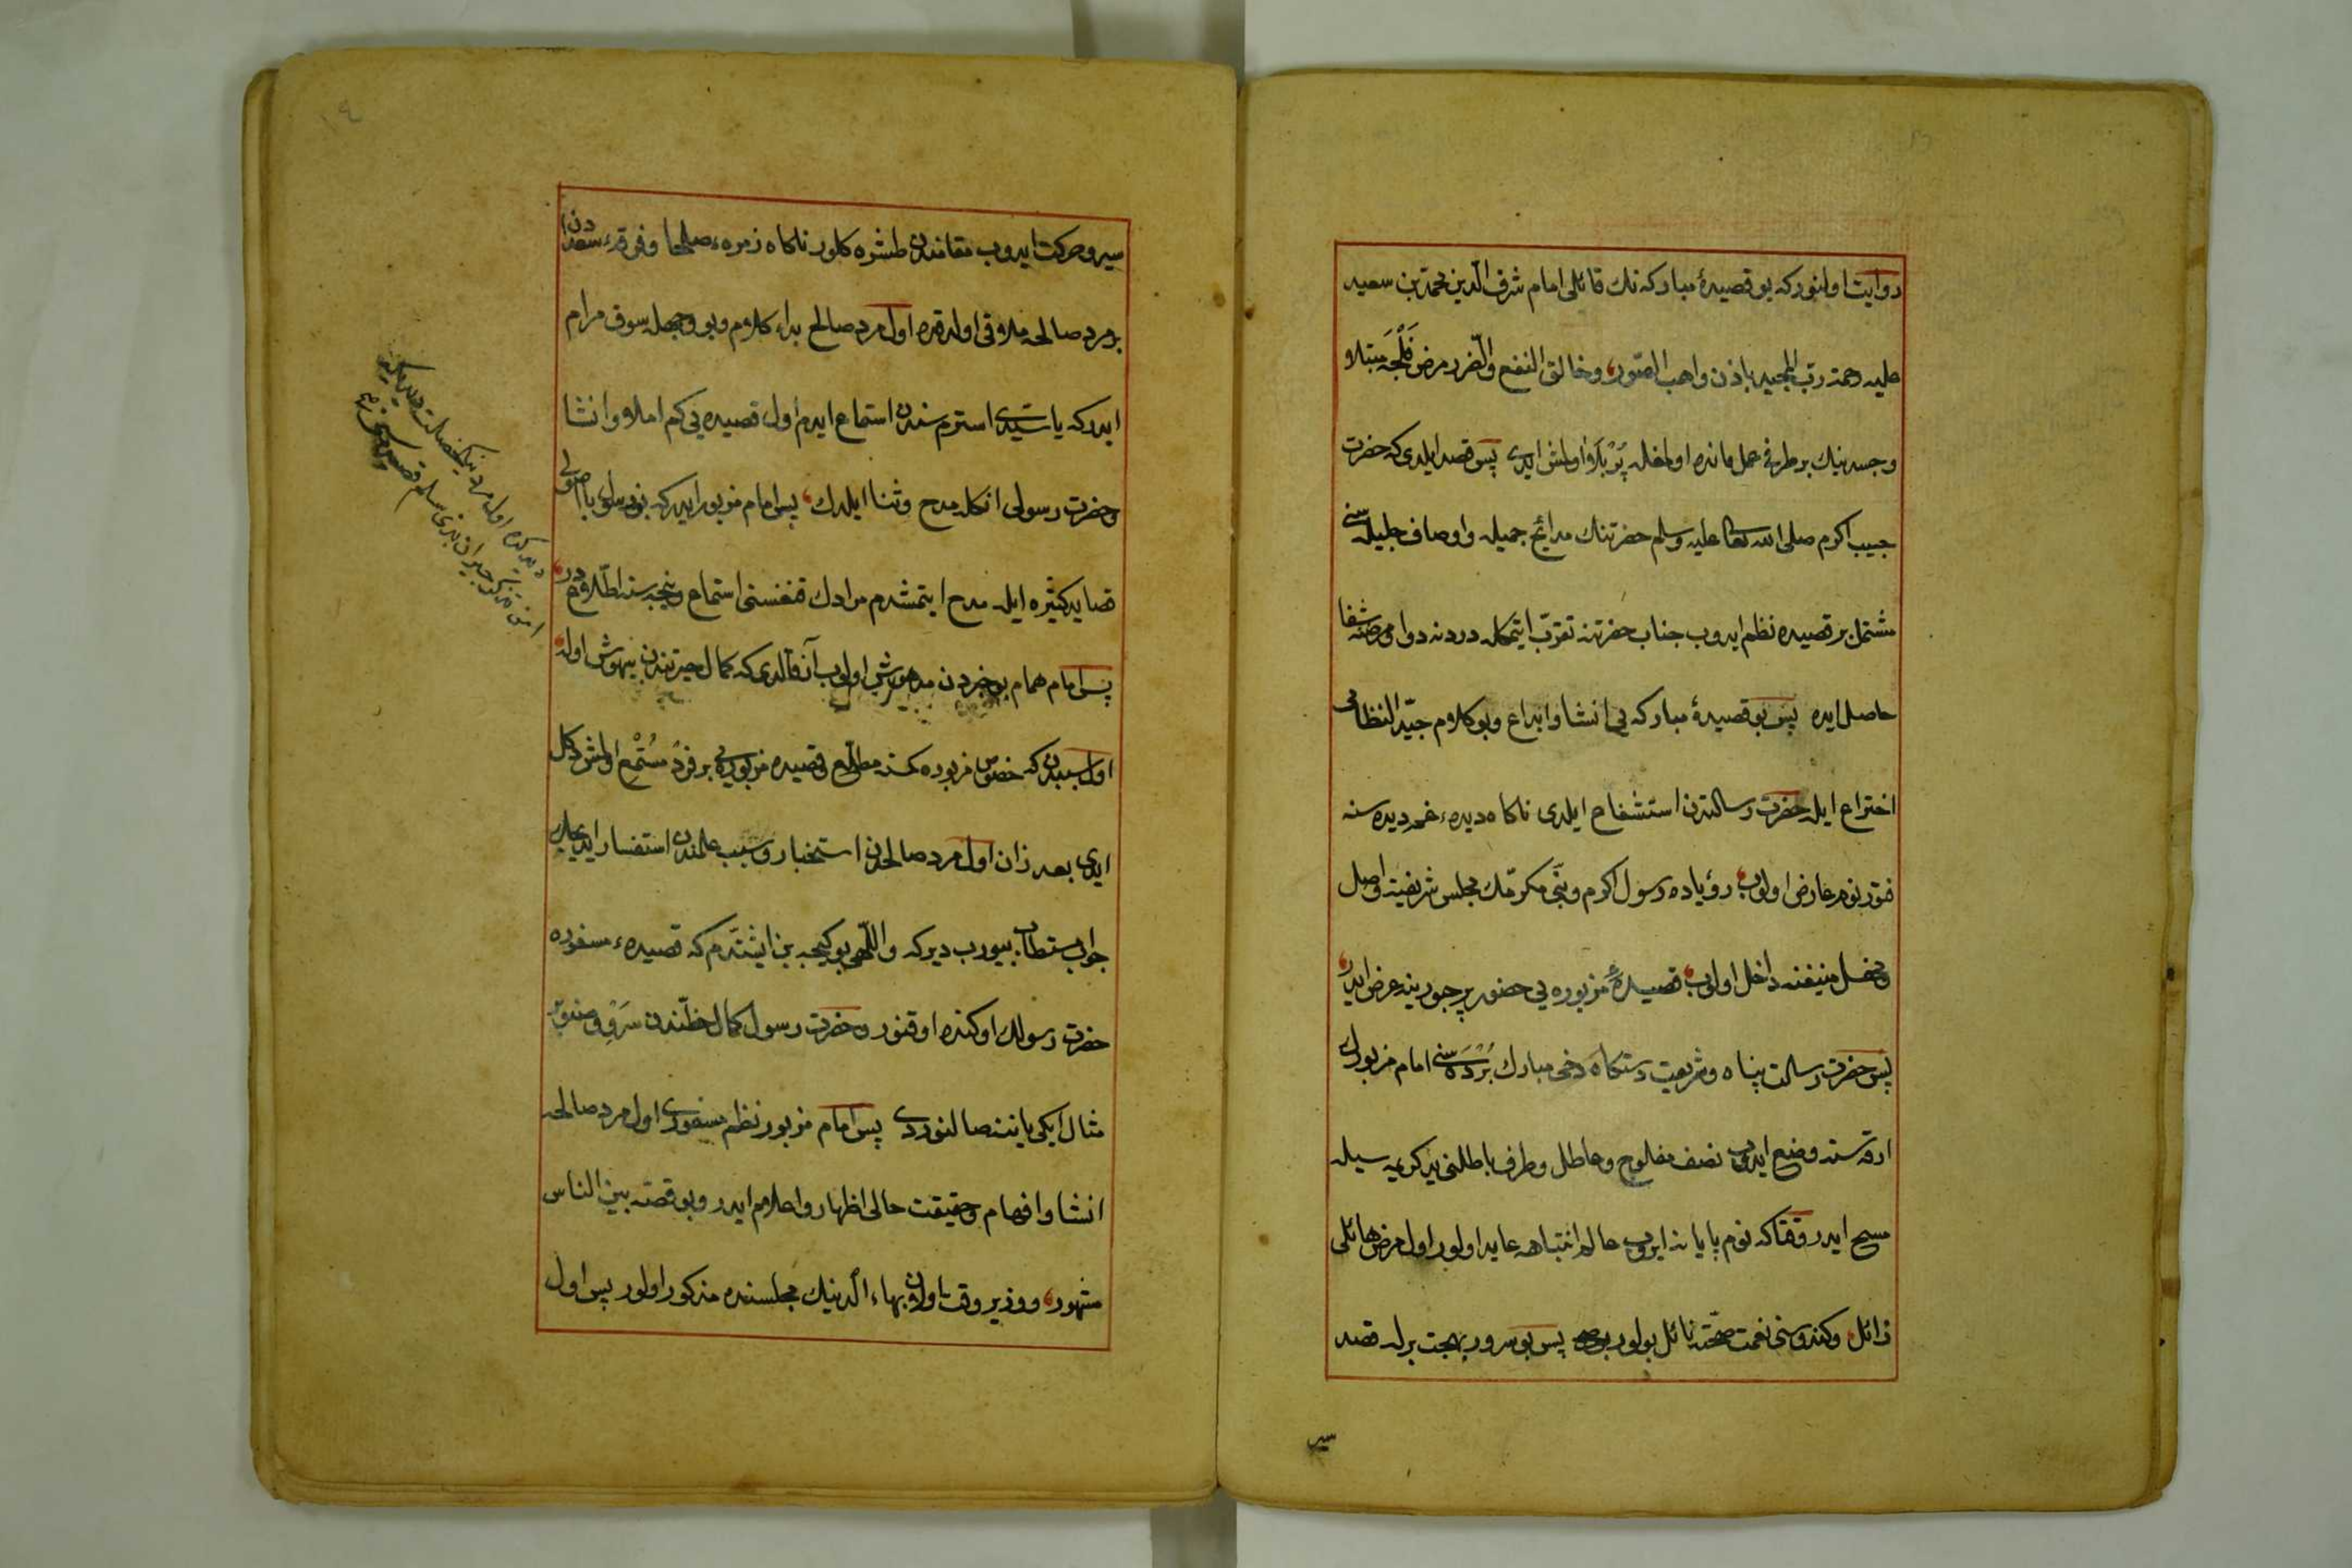 روایت اولنور که بو قصیدۀ مبارکه نك قائلی امام شرف الدین محمد بن سعید
علیه رحمة رب المجید باذن واهب الصّور وخالق النفع والضّرر مرض فَلْجَه مبتلا و
وجسدینك بر طرفی عمل مانده اولمغله پُرْبَلَا اولمش ایدی پس قصد ایلدی که حضرت
حبیب اکرم صلی الله تعالی علیه وسلم حضرتنك مدایح جمیله و اوصاف جلیله سنی
مشتمل بر قصیده نظم ایدوب جناب حضرتنه تقرّب ایتمکله دردنه دوا ومرضنه شفا
حاصل ایده پس بو قصیدۀ مبارکه یی انشا وابداع وبو کلام جیّد النظامی
اختراع ایله حضرت رسالتدن استشفاع ایلدی ناکاه دیدهء غمدیده سنه
فتور نوم عارض اولوب رؤیاده رسول اکرم ونبیّ مکرمّك مجلس شریفینه واصل
ومحفل منیفنه داخل اولوب قصیدۀ مزبوره یی حضور پرحبورینه عرض ایدر
پس حضرت رسالت پناه وشریعت دستکاه دخی مبارك بُرْدَه سنی امام مزبورك
ارقه سنه وضع ایدوب نصف مفلوج وعاطل وطرف باطلنی ید کریمه سیله
مسح ایدر وقتاکه نوم پایانه ایروب عالم انتباهه عاید اولور اول مرض هائلی
زائل وکندوسنی نعمت صحّته نائل بولور پس بو سرور بهجت برله قصد
سیر
سیر وحرکت ایدوب مقامندن طشره کلور ناکاه زمرهء صلحا وفرقهء سعدادن
بر مرد صالحه ملاقی اولدقده اول مرد صالح بدء کلام وبو وجهله سوق مرام
ایدر که یا سَیّدی استرم سندن استماع ایدم اول قصیده یی کم املا و انشا
وحضرت رسولی انکله مدح وثنا ایلدك پس امام مزبور ایدر که بن رسول با اصولی
قصاید کثیره ایله مدح ایتمشدم مرادك قنغسنی استماع ونیجه سنه اطّلاعدر
پس امام همام بو خبردن مدهوش اولوب آز قالدی که کمال حیرتندن بیهوش اوله
اول سببدن که خصوص مزبوره کمسنه مطلع وقصیده مزبوره یی بر فرد مُسْتَمِع اولمش دکل
ایدی بعد زان اول مرد صالحدن استخبار وسبب علمندن استفسار ایدیجك
جواب مستطاب بیورب دیر که واللّهی بو کیجه بن ایشتدم که قصیدهء مسفوره
حضرت رسولك اوکنده اوقنور وحضرت رسول کمال حظّندن سَرْو وصنوبر
مثال ایکی یاننه صالنوردی پس امام مزبور نظم مسفوری اول مرد صالحه
انشا وافهام وحقیقت حالی اظهار واعلام ایدر وبو قصّه بین الناس
مشهور ووزیر وقت اولان بهاء الدینك مجلسنده مذکور اولور پس اول
دیدکده اول مرد نیکخصلت